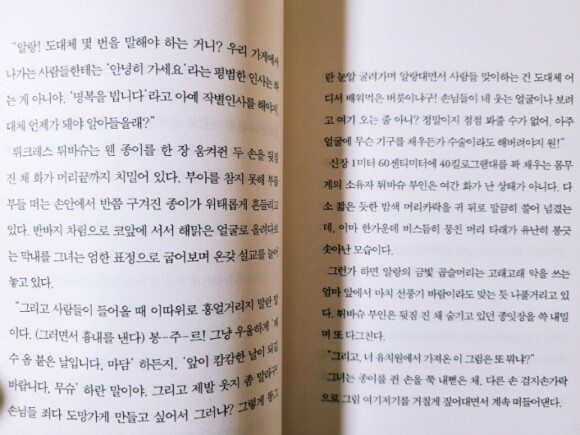 "알랑! 도대체 몇 번을 말해야 하는 거니? 우리 가게에서
나가는 사람들한테는 '안녕히 가세요'라는 평범한 인사는 하
는 게 아니야. '명복을 빕니다'라고 아예 작별인사를 해야지.
대체 언제가 돼야 알아들을래?"
뤼크레스 튀바슈는 웬 종이를 한 장 움켜쥔 두 손을 뒷짐
진 채 화가 머리끝까지 치밀어 있다. 부아를 참지 못해 부들
부들 떠는 손안에서 반쯤 구겨진 종이가 위태롭게 흔들리고
있다. 반바지 차림으로 코앞에 서서 해맑은 얼굴로 올려다보
는 막내를 그녀는 엄한 표정으로 굽어보며 온갖 설교를 늘어
놓고 있다.
"그리고 사람들이 들어올 때 이따위로 흥얼거리지 말란 말
이다. (그러면서 흉내를 낸다) 봉-주-르! 그냥 우울하게 '재
수 옴 붙은 날입니다. 마담' 하든지, '앞이 캄캄한 날이 되길
바랍니다, 무슈' 하란 말이야. 그리고 제발 웃지 좀 말라구!
손님들 죄다 도망가게 만들고 싶어서 그러냐? 그렇게 동그
란 눈알 굴려가며 알랑대면서 사람들 맞이하는 건 도대체 어
디서 배워먹은 버릇이냐구! 손님들이 네 웃는 얼굴이나 보려
고 여기 오는 줄 아니? 정말이지 점점 봐줄 수가 없어. 아주
얼굴에 무슨 기구를 채우든가 수술이라도 해버려야지 원!"
신장 1미터 60센티미터에 40킬로그램대를 꽉 채우는 몸무
게의 소유자 튀바슈 부인은 여간 화가 난 상태가 아니다. 다
소 짧은 듯한 밤색 머리카락을 귀 뒤로 말끔히 쓸어 넘겼는
데, 이마 한가운데 비스듬히 뭉친 머리 타래가 유난히 봉긋
솟아난 모습이다.
그런가 하면 알랑의 금빛 곱슬머리는 고래고래 악을 쓰는
엄마 앞에서 마치 선풍기 바람이라도 맞는 듯 나풀거리고 있
다. 튀바슈 부인은 뒷짐 진 채 숨기고 있던 종잇장을 쓱 내밀
며 또 다그친다.
"그리고, 너 유치원에서 가져온 이 그림은 또 뭐냐?"
그녀는 종이를 쥔 손을 쭉 내뻗은 채, 다른 손 검지손가락
으로 그림 여기저기를 거칠게 짚어대면서 계속 떠들어댄다.